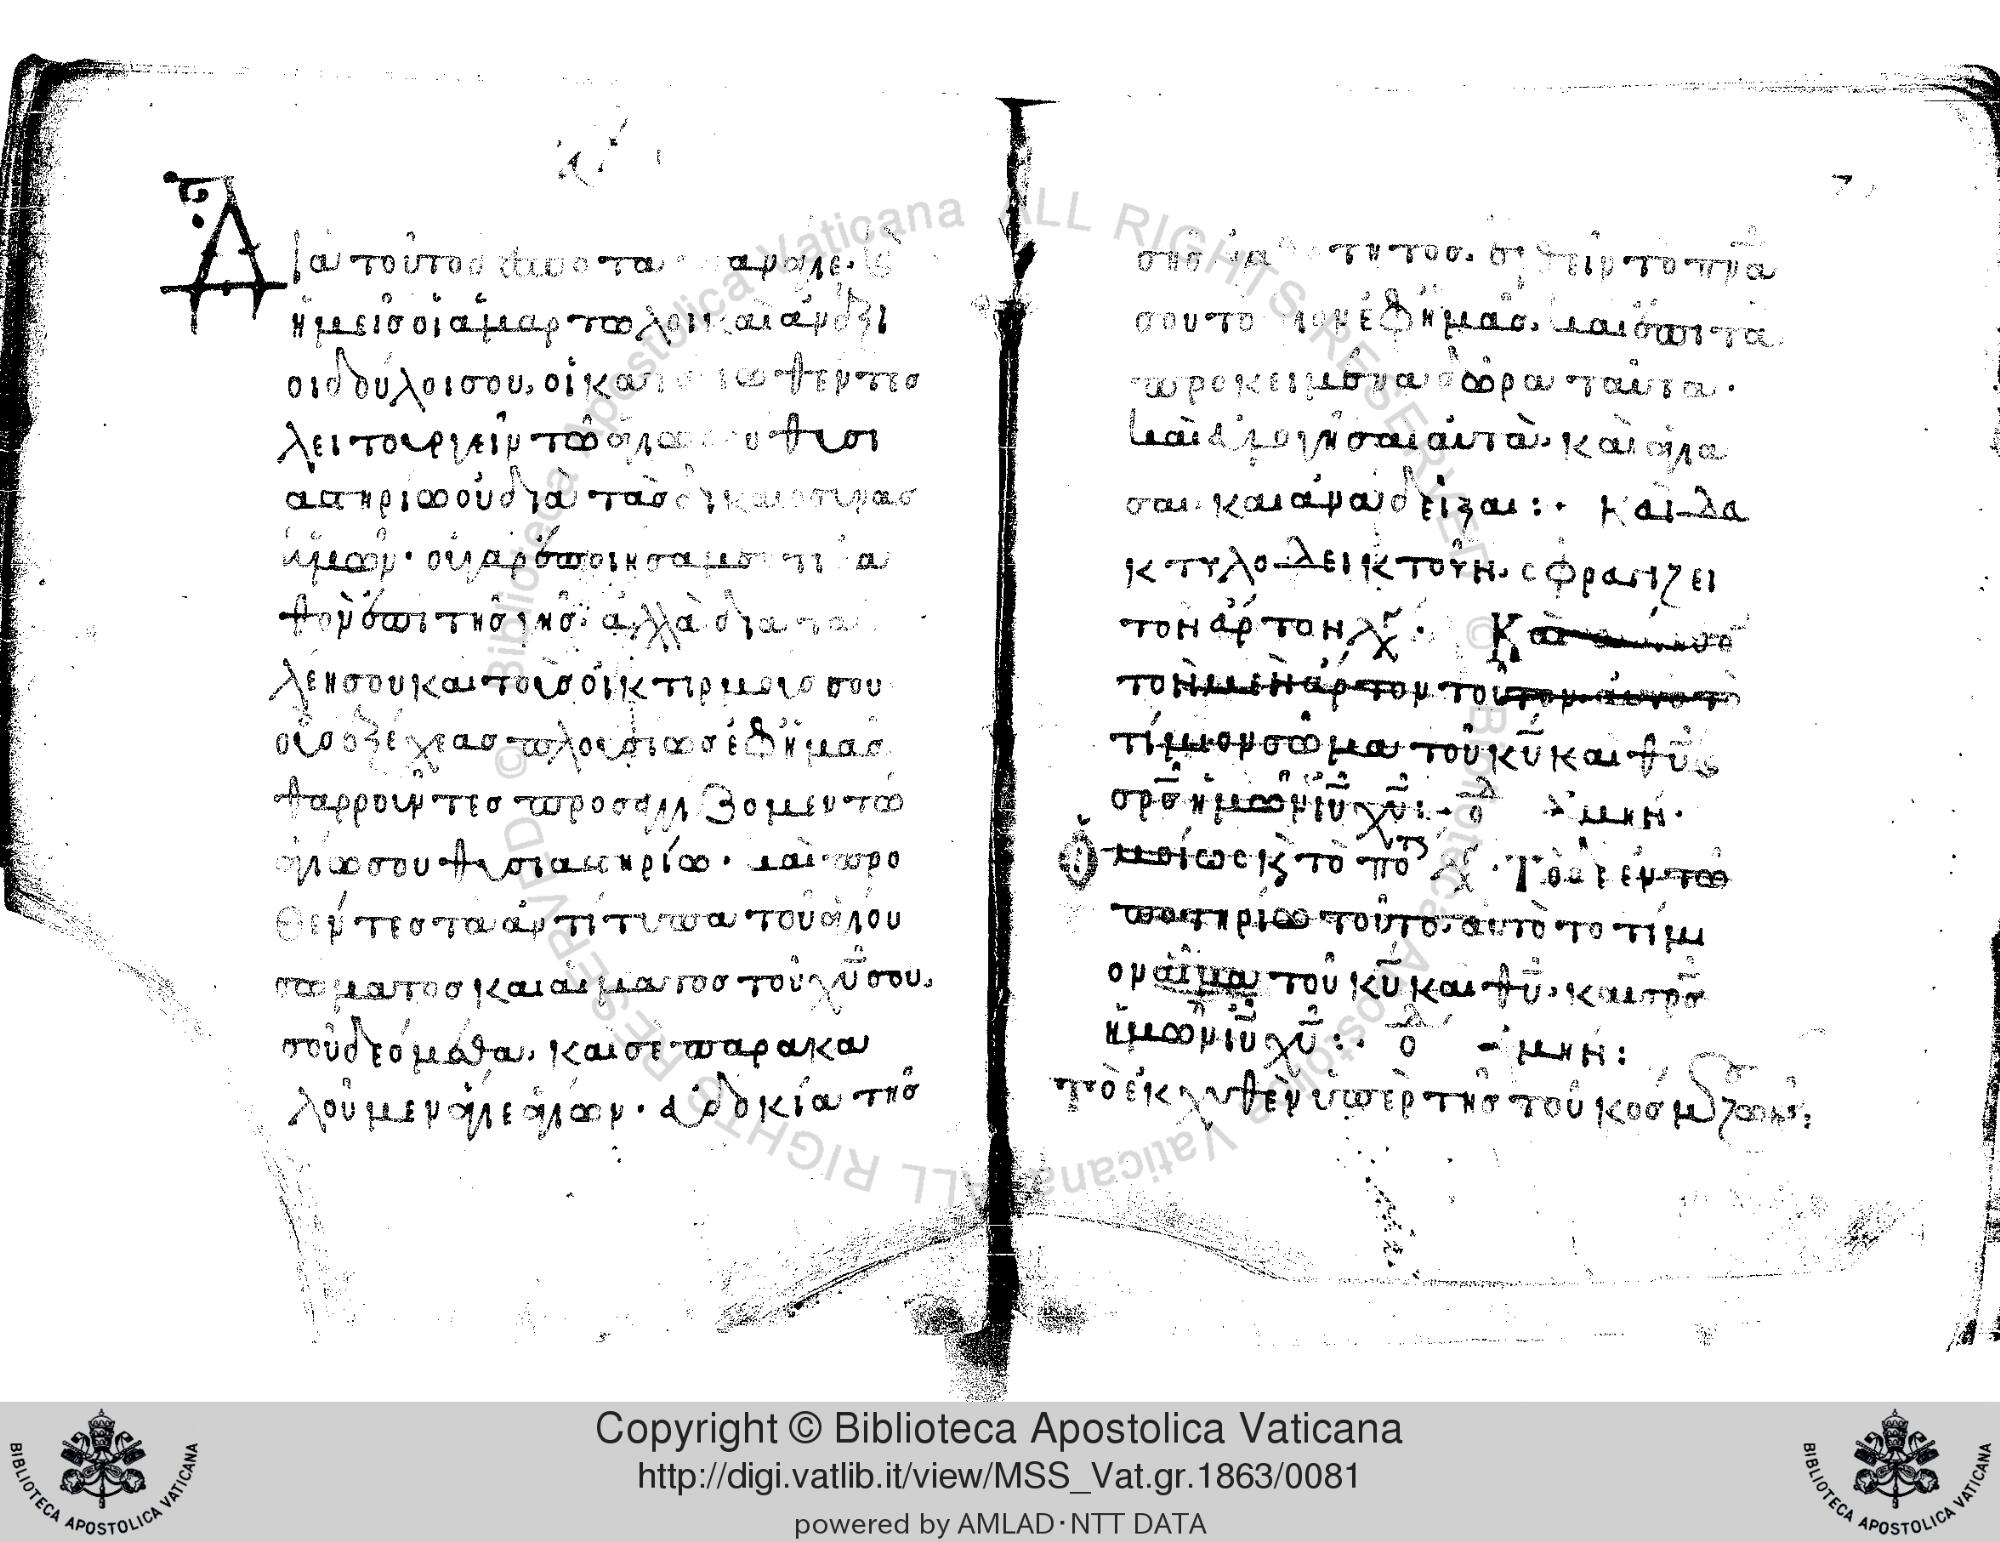 Διατοῦτο δέσποτα πανάγιε· καὶ
ἡμεῖς οἱ ἁμαρτωλοὶ καὶ ἀνάξι
οι δοῦλοι σου, οἱ καταξιωθέντες
λειτουργεῖν τῶ ἁγίω σου θυσι
αστηρίω οὐ διὰ τὰς δικαιοσύνας
ἡμῶν· οὐ γὰρ ἐποιήσαμέν τι ἀγα
θὸν ἐπὶ τῆς γῆς· ἀλλὰ διὰ τὰ
ἐλέη σου καὶ τοὺς οἰκτιρμούς σου
οὓς ἐξέχεας πλουσίως ἐφ' ἡμᾶς
θαρροῦντες προσεγγίζομεν τῶ
ἁγίω σου θυσιαστηρίω· καὶ προ
θέντες τὰ ἀντίτυπα τοῦ ἁγίου
σώματος καὶ αἵματος τοῦ χῦ σου,
σοῦ δεόμεθα, καὶ σὲ παρακα
λοῦμεν ἅγιε ἁγίων· εὐδοκία τῆς
σῆς ἀγαθότητος, ἐλθεῖν τὸ πνᾶ
σου τὸ ἅγιον ἐφ' ἡμᾶς, καὶ ἐπὶ τὰ
προκείμενα δῶρα ταῦτα·
καὶ εὐλογῆσαι αὐτὰ, καὶ ἁγιά
σαι, καὶ ἀναδεῖξαι:·
τὸν ἄρτον
τὸν μὲν ἄρτον τοῦτον, αὐτὸ τὸ
τίμιον σῶμα τοῦ κῦ καὶ θῦ καὶ
σρς ἡμῶν ιῦ χῦ:· ὁ λ ἀμήν·
Ὁμοίως καὶ τὸ πο Τὸ δὲ ἐν τῶ
ποτηρίω τοῦτο, αὐτὸ τὸ τίμι
ον αἷμα τοῦ κῦ καὶ θῦ, καὶ σρς
ἡμῶν ιῦ χῦ:· ὁ λ ἀμήν:
τὸ ἐκχυθὲν ὑπὲρ τῆς τοῦ κόσμου ζωῆς,
Copyright © Biblioteca Apostolica Vaticana
http://digi.vatlib.it/view/MSS_Vat.gr.1863/0081
powered by AMLAD·NTT DATA
BIBLIOTECA APOSTOLICA VATICANA
BIBLIOTECA APOSTOLICA VATICANA